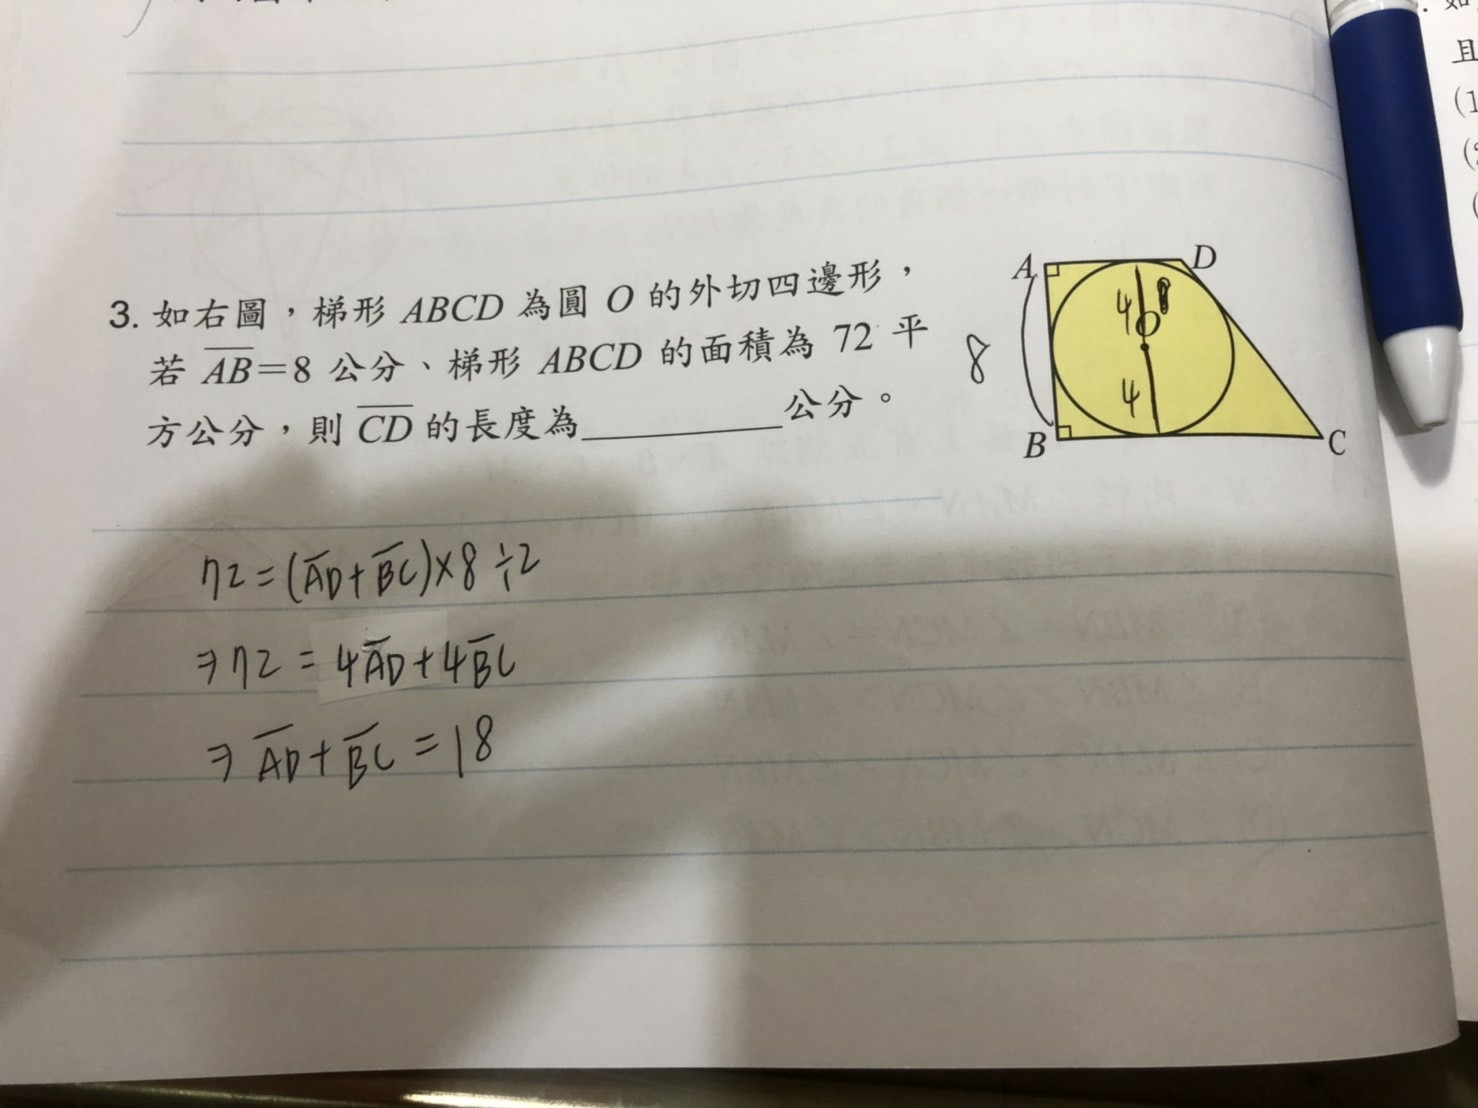 3. 如右圖，梯形 ABCD 為圓 O 的外切四邊形，
若 AB=8 公分、梯形 ABCD 的面積為 72 平
方公分，則 CD 的長度為＿＿＿＿公分。
A
D
8
4
O
4
B
C
72=(AD+BC)×8÷2
⇒72=4AD+4BC
⇒AD+BC=18
且